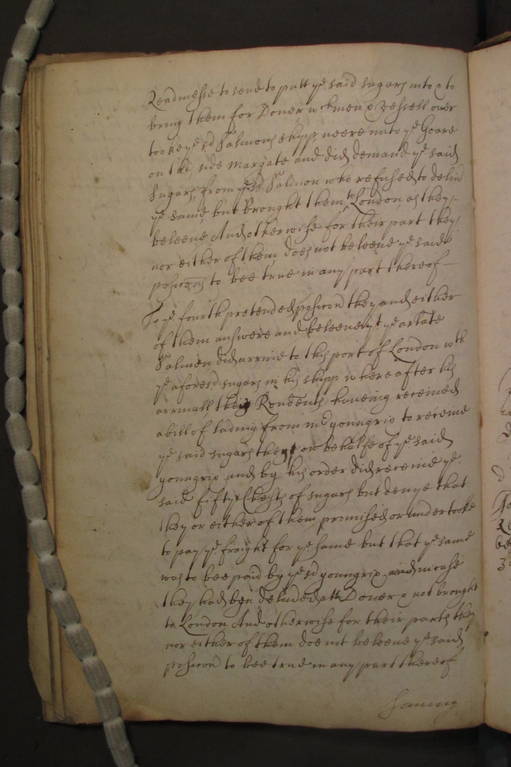 Readinesse to send to putt ye said sugars into & to
bring them for Dover wch men & vessell over
tooke ye sd Salmons shipp neere unto ye Goare
on this side Margate and did demand ye said
sugars from ye sd Salmon who refused to deliver
ye same but brought them to London as they
beleeve And otherwise for their part they
nor either of them does not beleeve ye said
posicon to bee true in any part thereof
To ye fourth pretended posicon they and either
of them answere and beleeve yt ye arlate
Salmon did arrive to this port of London wth
ye aforesd sugars in his shipp where after his
arrivall these Rendents haveing received
a bill of lading from mr youngrix to receive
ye said sugars there on behalfe of ye said
youngrix and by his order did receive ye
said fifty Chests of sugars but denye that
they or either of them promised or undertooke
to pay ye fraight for ye same but that ye same
was to bee paid by ye sd youngrix in case
they had been delivered at Dover & not brought
to London And otherwise for their parts they
nor either of them doe not beleeve ye said
posicon to bee true in any part thereof